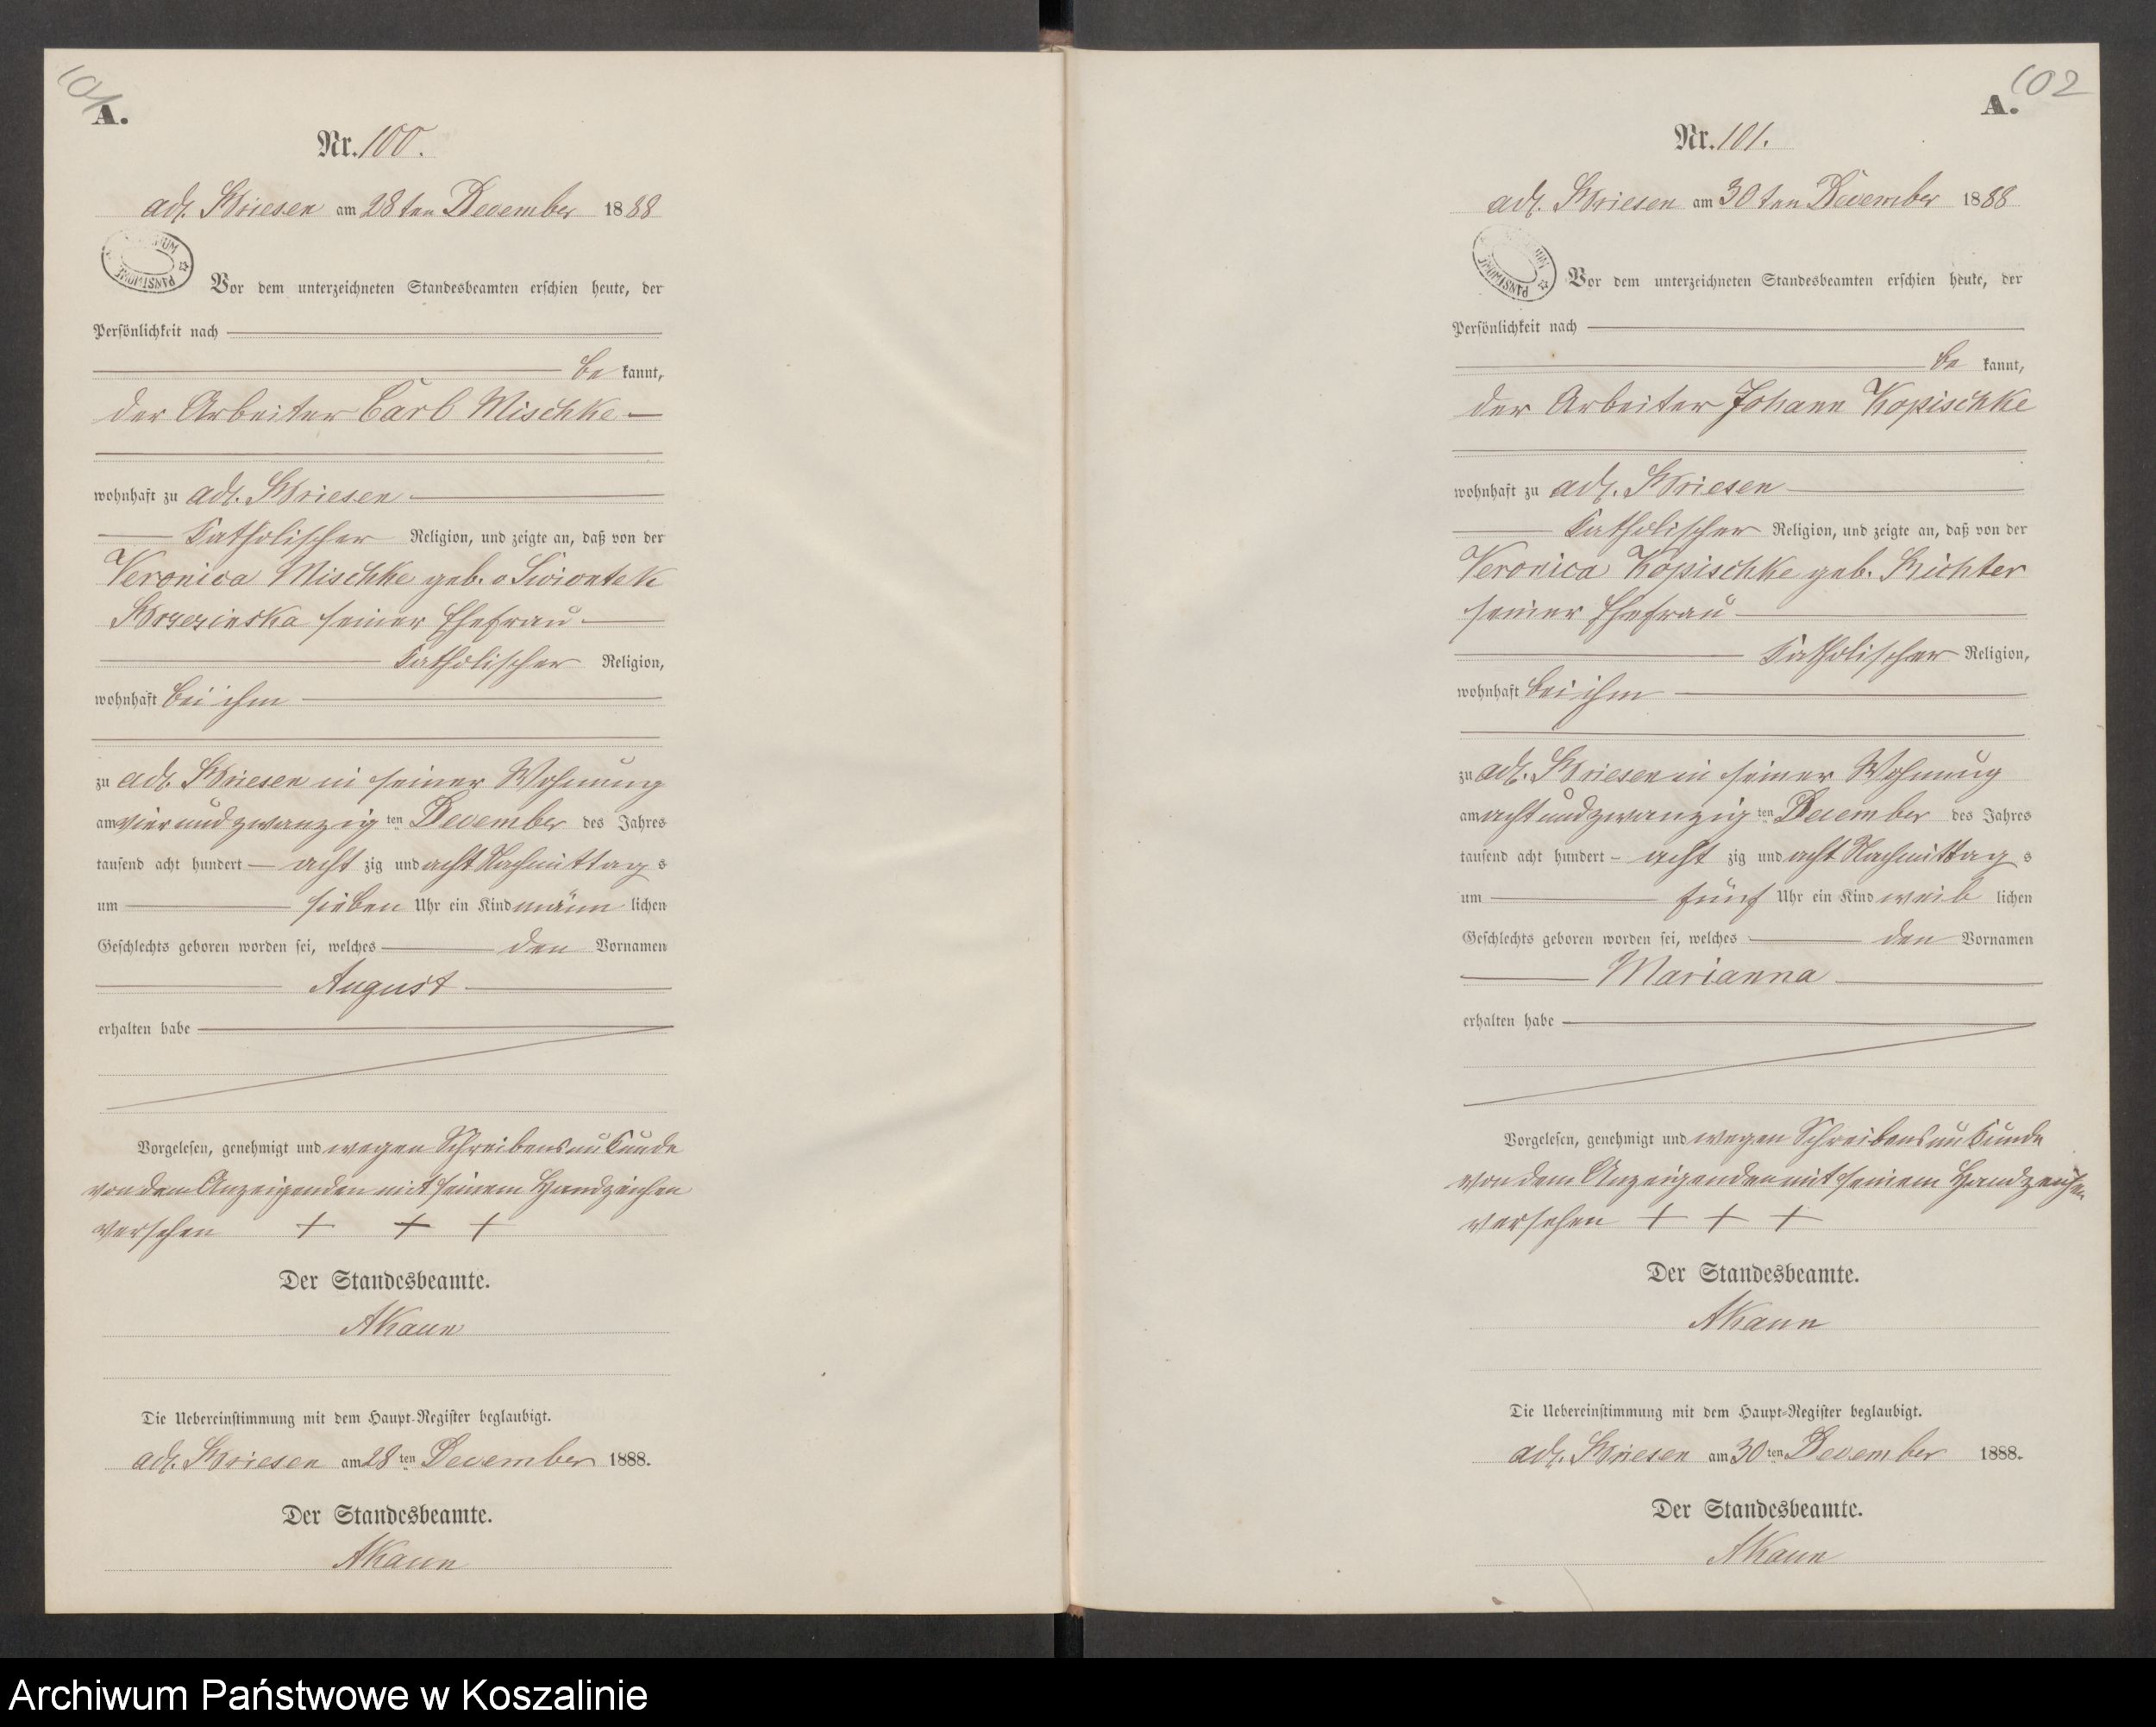 101
A.
Nr. 100.
adl. Briesen am 28ten December 1888
PAŃSTWOWE
Vor dem unterzeichneten Standesbeamten erschien heute, der
Persönlichkeit nach
be kannt,
der Arbeiter Carl Mischke
wohnhaft zu adl. Briesen
katholischer Religion, und zeigte an, daß von der
Veronica Mischke geb. v Swiontek
Brzezinska seiner Ehefrau
katholischer Religion,
wohnhaft bei ihm
zu adl. Briesen in seiner Wohnung
am vierundzwanzig ten December des Jahres
tausend acht hundert acht zig und acht Nachmittag s
um sieben Uhr ein Kind männ lichen
Geschlechts geboren worden sei, welches den Vornamen
August
erhalten habe
Vorgelesen, genehmigt und wegen Schreibensunkunde
von dem Anzeigenden mit seinem Handzeichen
versehen + + +
Der Standesbeamte.
AKaun
Die Uebereinstimmung mit dem Haupt-Register beglaubigt.
adl. Briesen am 28 ten December 1888.
Der Standesbeamte.
AKaun
102
A.
Nr. 101.
adl. Briesen am 30ten December 1888
PAŃSTWOWE
Vor dem unterzeichneten Standesbeamten erschien heute, der
Persönlichkeit nach
be kannt,
der Arbeiter Johann Kopischke
wohnhaft zu adl. Briesen
katholischer Religion, und zeigte an, daß von der
Veronica Kopischke geb. Richter
seiner Ehefrau
katholischer Religion,
wohnhaft bei ihm
zu adl. Briesen in seiner Wohnung
am achtundzwanzig ten December des Jahres
tausend acht hundert acht zig und acht Nachmittag s
um fünf Uhr ein Kind weib lichen
Geschlechts geboren worden sei, welches den Vornamen
Marianna
erhalten habe
Vorgelesen, genehmigt und wegen Schreibensunkunde
von dem Anzeigenden mit seinem Handzeichen
versehen + + +
Der Standesbeamte.
AKaun
Die Uebereinstimmung mit dem Haupt-Register beglaubigt.
adl. Briesen am 30 ten December 1888.
Der Standesbeamte.
AKaun
Archiwum Państwowe w Koszalinie